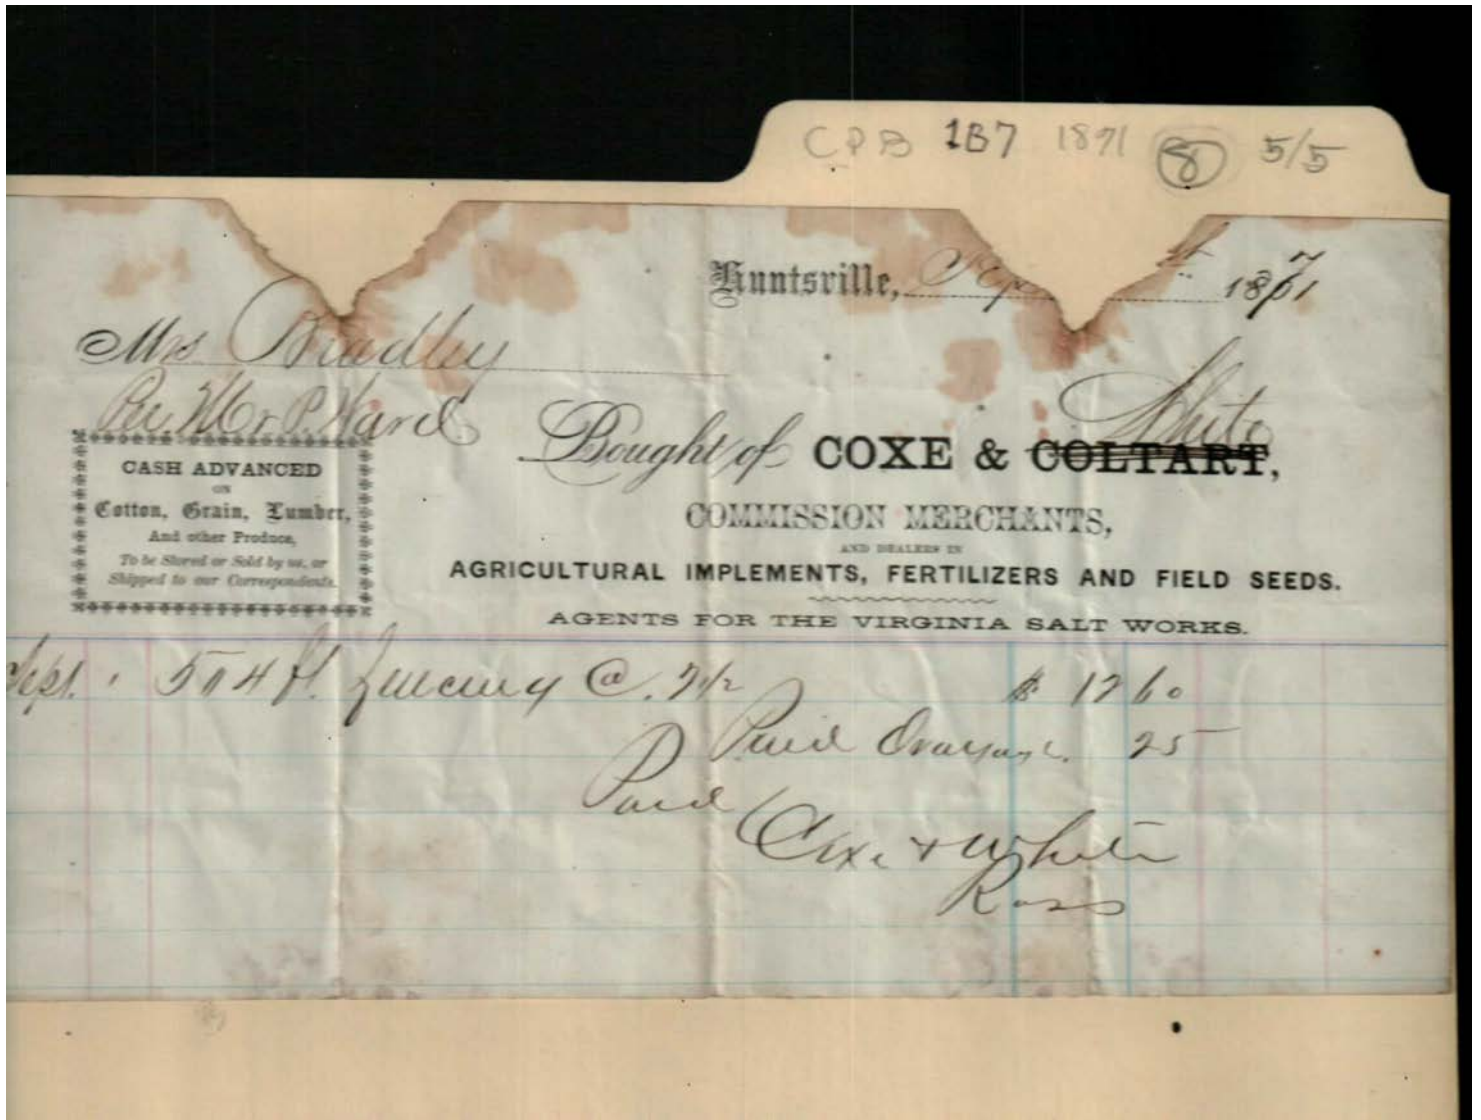 CPB 1B7 1871 8 5/5
Huntsville, Sep st 1871
Mrs Bradley
Per Mr P. Ward
White
Bought of COXE & COLTART,
CASH ADVANCED
ON
Cotton, Grain, Lumber,
And other Produce,
To be Stored or Sold by us, or
Shipped to our Correspondents.
COMMISSION MERCHANTS,
AND DEALERS IN
AGRICULTURAL IMPLEMENTS, FERTILIZERS AND FIELD SEEDS.
AGENTS FOR THE VIRGINIA SALT WORKS.
Sept. 504 ft. @. 2 1/2 $ 12 60
Paid Drayage. 25
Paid
Coxe & White
Ross